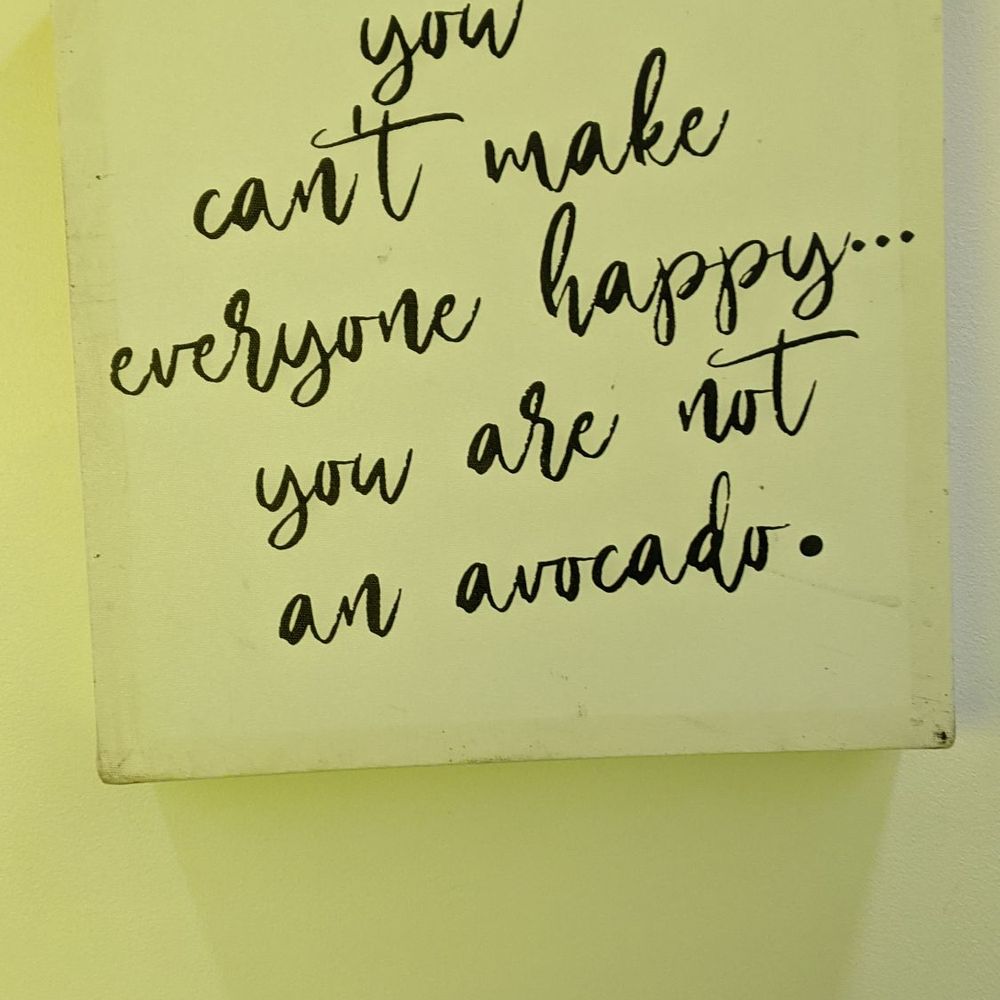 you
can't make
everyone happy...
you are not
an avocado.